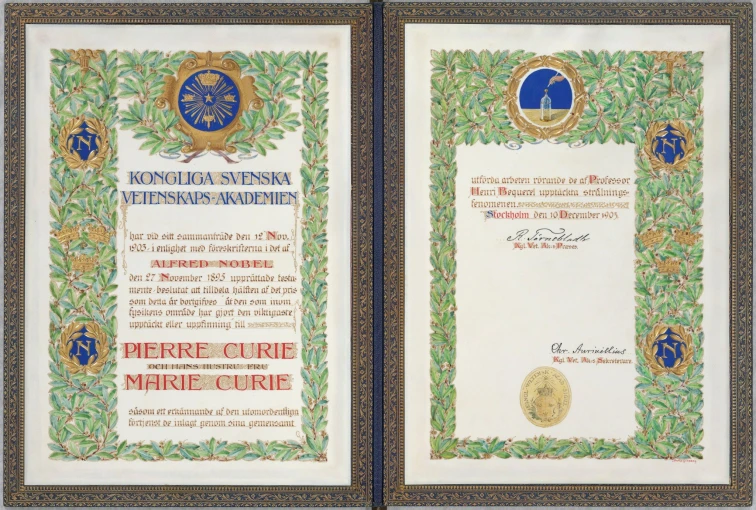 KONGLIGA SVENSKA
VETENSKAPS-AKADEMIEN
har vid sitt sammanträde den 12 Nov.
1903, i enlighet med föreskrifterna i det af
ALFRED NOBEL
den 27 November 1895 upprättade testa-
mente beslutat att tilldela hälften af det pris
som detta år bortgifves åt den som inom
fysikens område har gjort den viktigaste
upptäckt eller uppfinning till
PIERRE CURIE
OCH HANS HUSTRU FRU
MARIE CURIE
såsom ett erkännande af den utomordentliga
förtjenst de inlagt genom sina gemensamt
N
N
utförda arbeten rörande de af Professor
Henri Bequerel upptäckta strålnings-
fenomenen
Stockholm den 10 December 1903.
R. Törnebladh
Kgl. Vet. Ak:s Præses.
Chr. Aurivillius
Kgl. Vet. Ak:s Sekreterare.
N
N